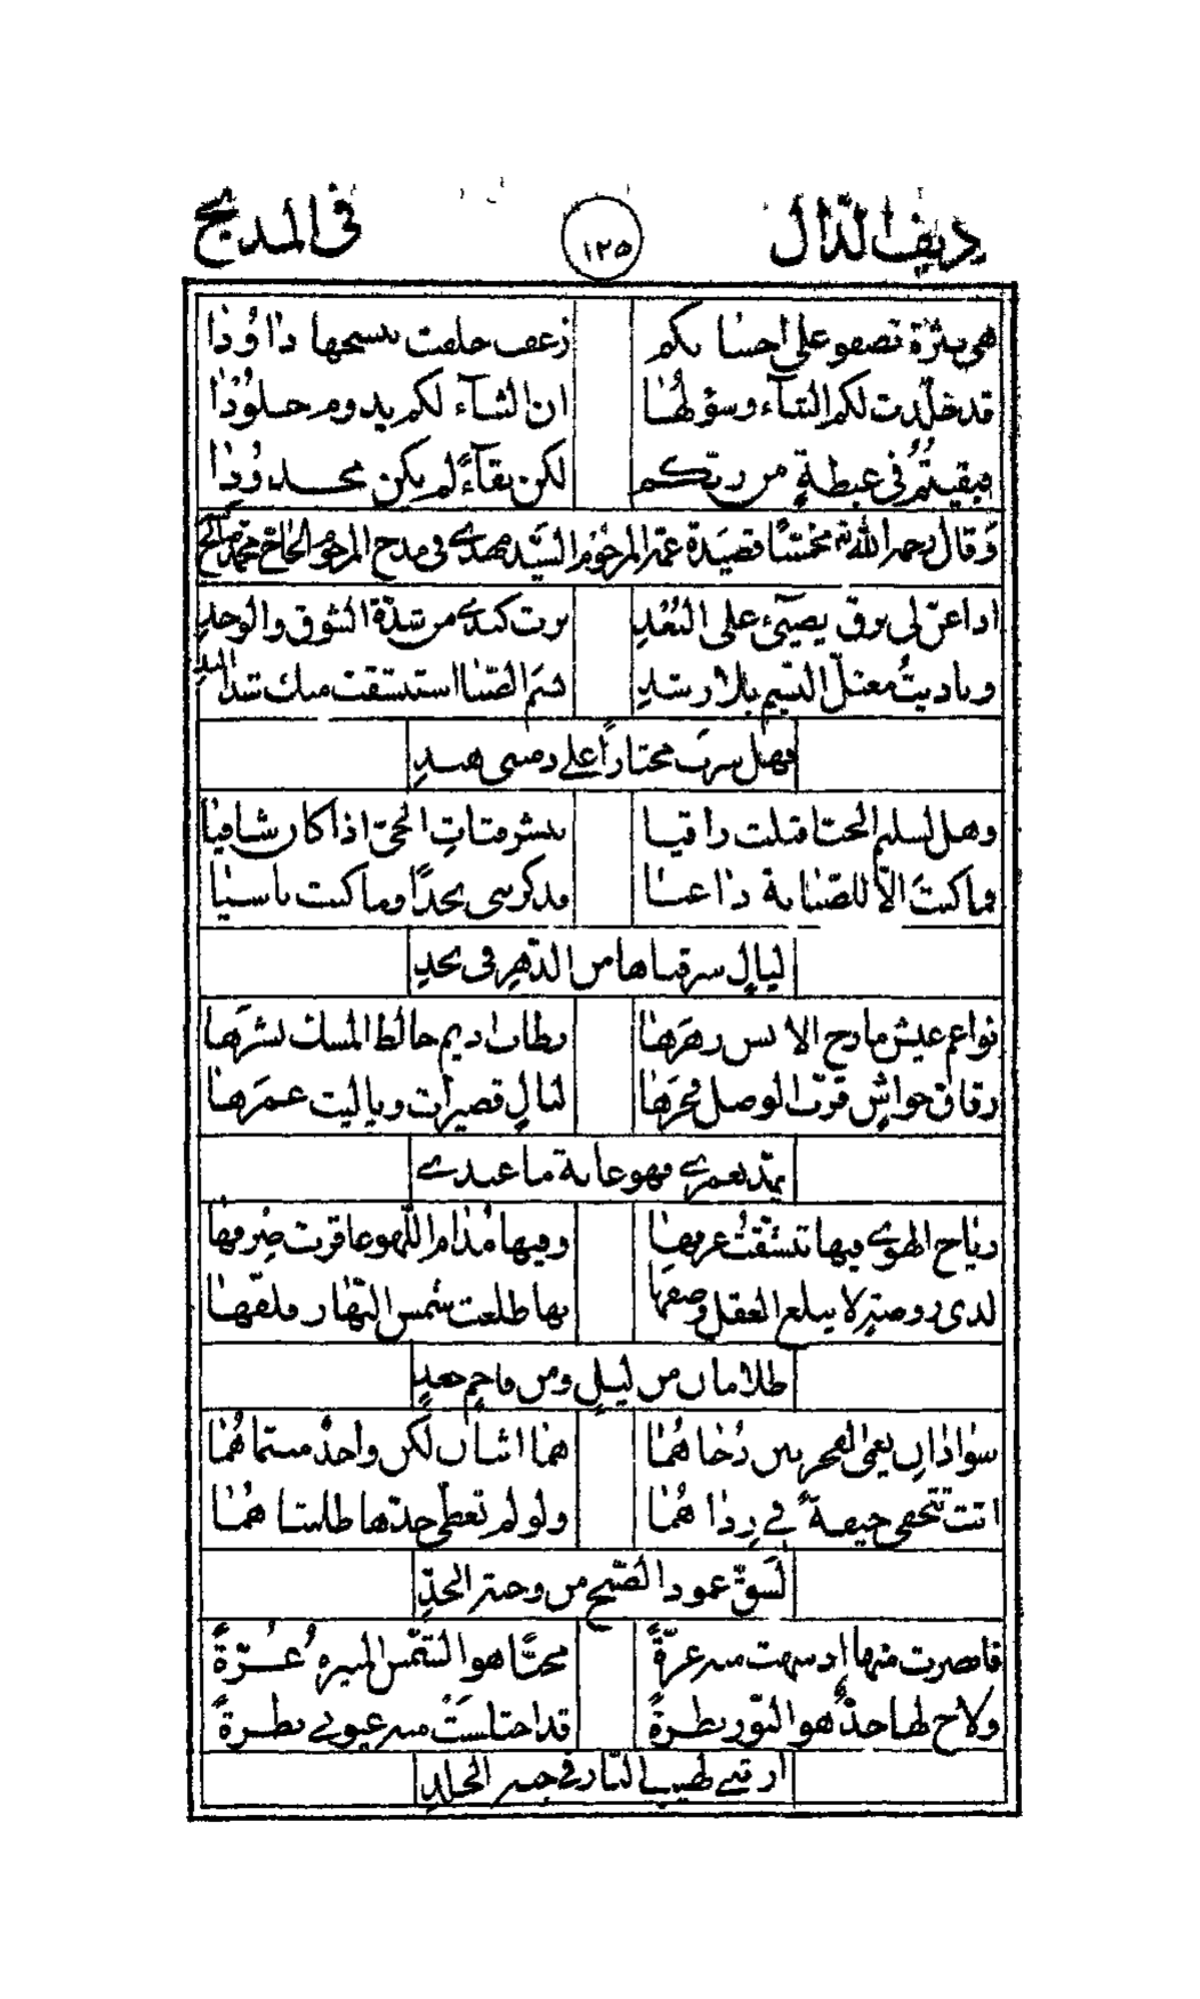 رديف الدّال ١٢٥ في المديح
هي نثرة تصفو على احسابكم زعف حلفت بنسجها داوُدا
قد خلّدت لكم الثناء وسؤلها ان الثناء لكم يدوم خلودا
فبقيتُمُ في غبطةٍ من ربّكم لكن بقاءً لم يكن محدودا
وقال رحمه الله مخمّسًا قصيدة عمّه المرحوم السيّد مهدي في مدح المرحوم الحاج محمد صالح
اذا عنّ لي برق يضيئ على البُعْدِ نزت كبدي من شدّة الشوق والوجدِ
وناديتُ معتلّ النسيم بلا رشدِ نسَم الصّبا استنشقت منك شذا الندِّ
فهل سرتَ مختارًا على دمنتي هندِ
وهل لسليم الحبّ اقبلت راقيا بنشر فتاتِ الحيّ اذ كان شافيا
وما كنتَ الاّ للصّبابة داعيا فذكّرتني نجدًا وما كنت ناسيا
ليالٍ سرقناها من الدّهرِ في نجدِ
نواعم عيش مازج الانس زهرها وطاب اديم خالط المسك نشرها
رقاق حواشٍ قرّب الوصل فجرها ليالٍ قصيرات ويا ليت عمرها
يمدّ بعمري فهو غاية ما عندي
رياح الهوى فيها تنشّقتُ عرفها وفيها مُدام اللّهو عاقرت صرفها
لدى روضةٍ لا يبلغ العقل وصفها بها طلعت شمس النّهار فلفّها
ظلامان من ليلٍ ومن فاحمٍ جعدِ
سوادانِ يعمى الفجر بين دُجاهُما هما اثنان لكن واحدٌ منتماهُما
اتت تتخفّى خيفةً في رداهُما ولو لم تغطّي خدّها ظلمتاهُما
لشقّ عمود الصّبح من وجنة الخدِّ
فابصرت منها اذ سهت منه غرّةً محيّا هو الشّمس المنيرةُ غُرّةً
ولاح لها خدٌّ هو النّور نظرةً قد اختلستْ منه عيوني نظرةً
ارتني لهيب النّار في جنّة الخلدِ